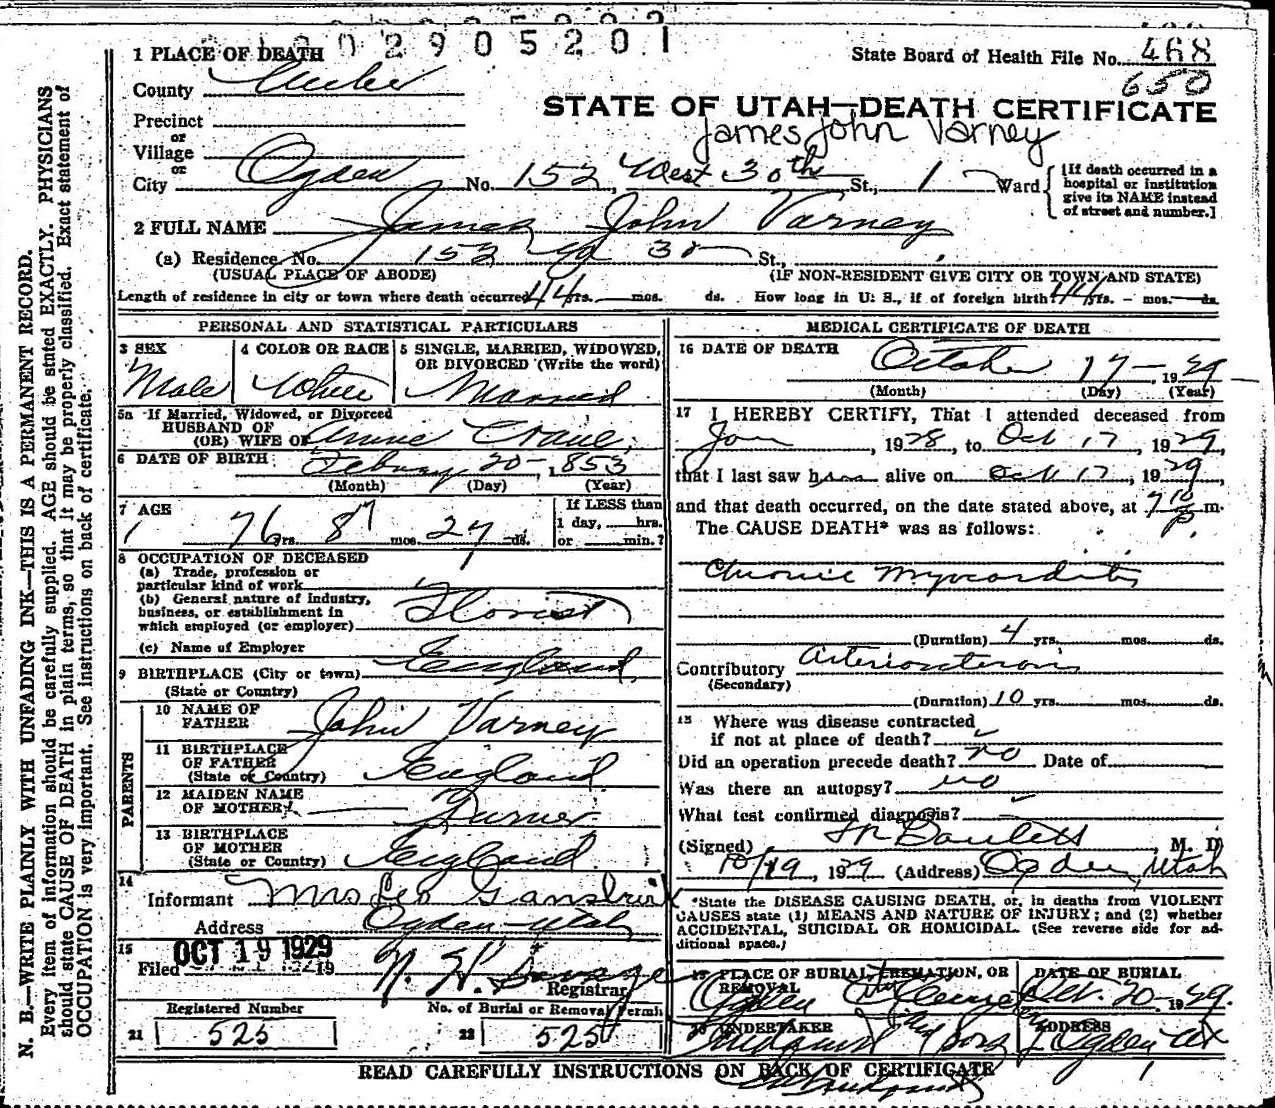 2905201
1 PLACE OF DEATH
State Board of Health File No. 468
County Weber
650
STATE OF UTAH—DEATH CERTIFICATE
Precinct
James John Varney
or
Village
or
City Ogden No. 152 West 30th St., 1 Ward
[If death occurred in a hospital or institution give its NAME instead of street and number.]
2 FULL NAME James John Varney
(a) Residence No. 152 W 30 St.,
(USUAL PLACE OF ABODE) (IF NON-RESIDENT GIVE CITY OR TOWN AND STATE)
Length of residence in city or town where death occurred 44 yrs. mos. ds. How long in U. S., if of foreign birth? 44 yrs. — mos. — ds.
PERSONAL AND STATISTICAL PARTICULARS
3 SEX Male
4 COLOR OR RACE White
5 SINGLE, MARRIED, WIDOWED, OR DIVORCED (Write the word) Married
5a If Married, Widowed, or Divorced
HUSBAND OF
(OR) WIFE OF Annie Crane
6 DATE OF BIRTH February 20 – 1853
(Month) (Day) (Year)
7 AGE
76 yrs. 8 7 mos. 27 ds.
If LESS than
1 day, hrs.
or min.?
8 OCCUPATION OF DECEASED
(a) Trade, profession or
particular kind of work
(b) General nature of industry,
business, or establishment in
which employed (or employer) Florist
(c) Name of Employer
9 BIRTHPLACE (City or town) England
(State or Country)
PARENTS
10 NAME OF FATHER John Varney
11 BIRTHPLACE OF FATHER
(State or Country) England
12 MAIDEN NAME OF MOTHER — Turner
13 BIRTHPLACE OF MOTHER
(State or Country) England
14
Informant Mrs Leo
Address Ogden Utah
15
Filed OCT 19 1929 19
Registrar
Registered Number
No. of Burial or Removal Permit
21 525
22 525
MEDICAL CERTIFICATE OF DEATH
16 DATE OF DEATH October 17 – 1929
(Month) (Day) (Year)
17 I HEREBY CERTIFY, That I attended deceased from
Jan , 1928, to Oct 17, 1929,
that I last saw him alive on Oct 17, 1929,
and that death occurred, on the date stated above, at 7 10 p. m.
The CAUSE DEATH* was as follows:
Chronic Myocarditis
(Duration) 4 yrs. mos. ds.
Contributory
(Secondary)
(Duration) 10 yrs. mos. ds.
Where was disease contracted
if not at place of death?
Did an operation precede death? no Date of
Was there an autopsy? no
What test confirmed diagnosis?
(Signed) M. D
10/19, 1929 (Address) Ogden, Utah
*State the DISEASE CAUSING DEATH, or, in deaths from VIOLENT
CAUSES state (1) MEANS AND NATURE OF INJURY; and (2) whether
ACCIDENTAL, SUICIDAL OR HOMICIDAL. (See reverse side for additional space.)
19 PLACE OF BURIAL, CREMATION, OR REMOVAL
Ogden City
DATE OF BURIAL
Oct. 20 – 1929.
20 UNDERTAKER
ADDRESS
Ogden
READ CAREFULLY INSTRUCTIONS ON BACK OF CERTIFICATE
N. B.—WRITE PLAINLY WITH UNFADING INK—THIS IS A PERMANENT RECORD.
Every item of information should be carefully supplied. AGE should be stated EXACTLY. PHYSICIANS
should state CAUSE OF DEATH in plain terms, so that it may be properly classified. Exact statement of
OCCUPATION is very important. See instructions on back of certificate.